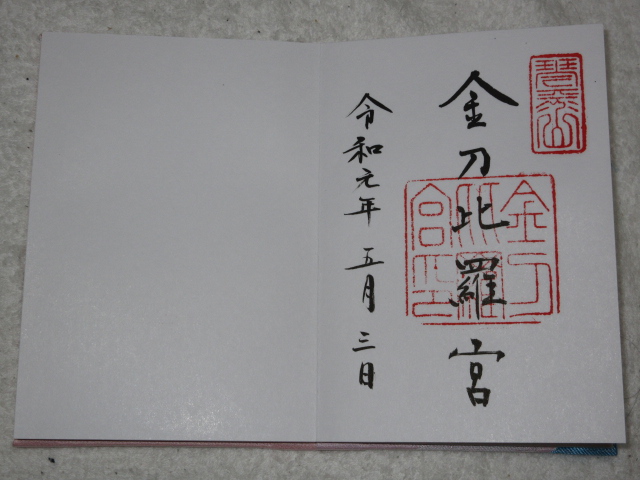 琴平山
金刀比羅宮
金刀比羅宮印
令和元年五月三日